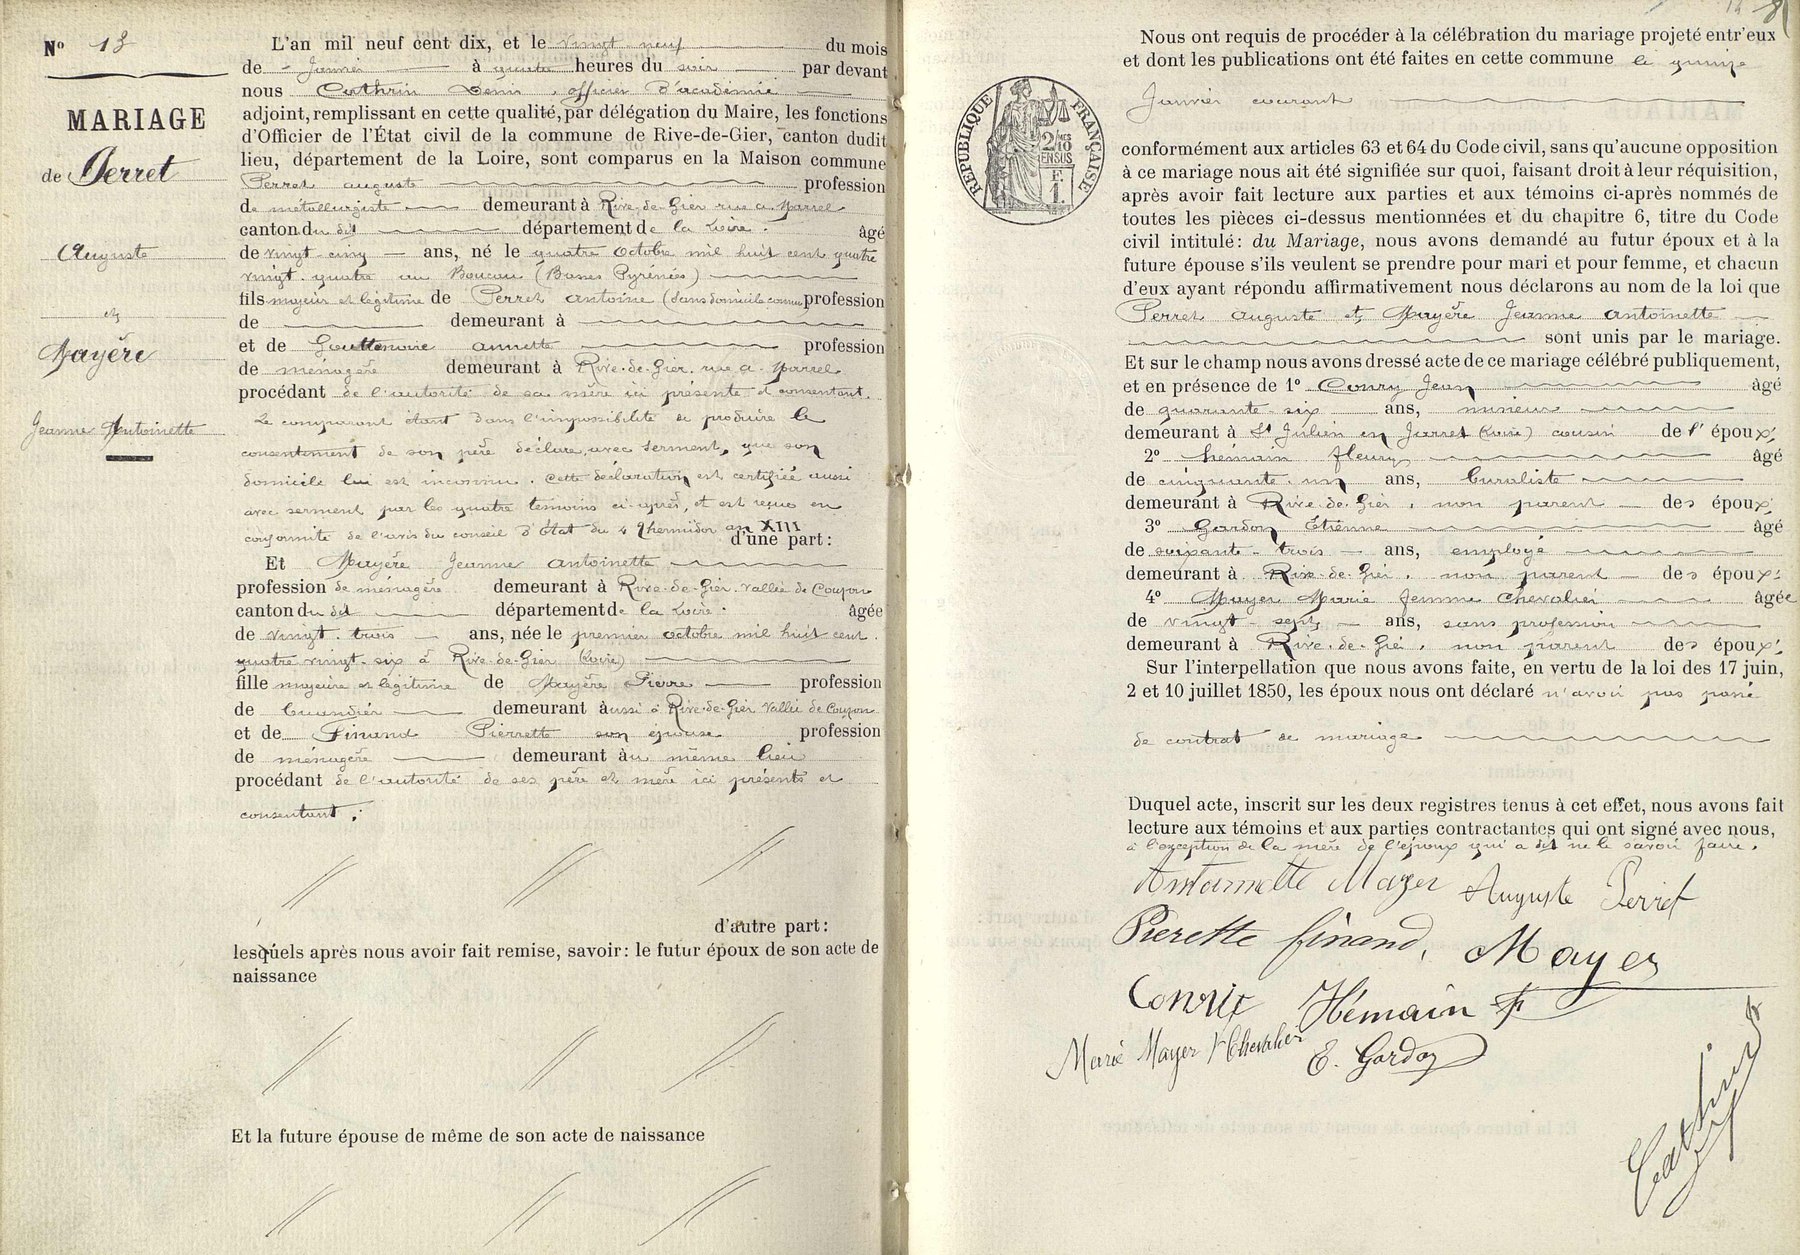 N° 13
MARIAGE
de Perret
Auguste
et
Mayère
Jeanne Antoinette
L'an mil neuf cent dix, et le vingt neuf du mois
de Janvier à quatre heures du soir par devant
nous Cathrin Denis, officier d'académie
adjoint, remplissant en cette qualité, par délégation du Maire, les fonctions
d'Officier de l'État civil de la commune de Rive-de-Gier, canton dudit
lieu, département de la Loire, sont comparus en la Maison commune
Perret auguste profession
de métallurgiste demeurant à Rive-de-Gier rue a. Marrel
canton du dit département de la Loire. âgé
de vingt cinq ans, né le quatre octobre mil huit cent quatre
vingt quatre au Boucau (Basses Pyrénées)
fils majeur et légitime de Perret antoine (sans domicile connu profession
de demeurant à
et de Gouttenoire annette profession
de ménagère demeurant à Rive-de-Gier. rue a. Marrel
procédant de l'autorité de sa mère ici présente et consentant.
Le comparant étant dans l'impossibilité de produire le
consentement de son père déclare avec serment, que son
domicile lui est inconnu. cette déclaration est certifiée aussi
avec serment par les quatre témoins ci-après, et est reçue en
conformité de l'avis du conseil d'État du 4 thermidor an XIII
d'une part:
Et Mayère Jeanne antoinette
profession de ménagère demeurant à Rive-de-Gier. Vallée de Couzon
canton du dit département de la Loire. âgée
de vingt trois ans, née le premier octobre mil huit cent
quatre vingt six à Rive-de-Gier (Loire)
fille majeure et légitime de Mayère Pierre profession
de demeurant à aussi à Rive-de-Gier Vallée de Couzon
et de Finand Pierrette son épouse profession
de ménagère demeurant au même lieu
procédant de l'autorité de ses père et mère ici présents et
consentant.
d'autre part:
lesquels après nous avoir fait remise, savoir: le futur époux de son acte de
naissance
Et la future épouse de même de son acte de naissance
Nous ont requis de procéder à la célébration du mariage projeté entr'eux
et dont les publications ont été faites en cette commune le quinze
Janvier courant
RÉPUBLIQUE FRANÇAISE
2/10 EN SUS
F. 1.
conformément aux articles 63 et 64 du Code civil, sans qu'aucune opposition
à ce mariage nous ait été signifiée sur quoi, faisant droit à leur réquisition,
après avoir fait lecture aux parties et aux témoins ci-après nommés de
toutes les pièces ci-dessus mentionnées et du chapitre 6, titre du Code
civil intitulé: du Mariage, nous avons demandé au futur époux et à la
future épouse s'ils veulent se prendre pour mari et pour femme, et chacun
d'eux ayant répondu affirmativement nous déclarons au nom de la loi que
Perret auguste et Mayère Jeanne antoinette
sont unis par le mariage.
Et sur le champ nous avons dressé acte de ce mariage célébré publiquement,
et en présence de 1° Conry Jean âgé
de quarante six ans, mineur
demeurant à St Julien en Jarret (Loire) cousin de l'époux.
2° hémain fleury âgé
de cinquante un ans, buraliste
demeurant à Rive-de-Gier, non parent des époux.
3° Gardon Etienne âgé
de soixante trois ans, employé
demeurant à Rive-de-Gier, non parent des époux.
4° Mayer Marie femme Chevalier âgée
de vingt sept ans, sans profession
demeurant à Rive-de-Gier, non parent des époux.
Sur l'interpellation que nous avons faite, en vertu de la loi des 17 juin,
2 et 10 juillet 1850, les époux nous ont déclaré n'avoir pas passé
de contrat de mariage
Duquel acte, inscrit sur les deux registres tenus à cet effet, nous avons fait
lecture aux témoins et aux parties contractantes qui ont signé avec nous,
à l'exception de la mère de l'époux qui a dit ne le savoir faire.
Antoinette Mayer Auguste Perret
Pierette finand, Mayer
Conrix Hémain F
Marie Mayer f Chevalier E. Gardon
Cathrin